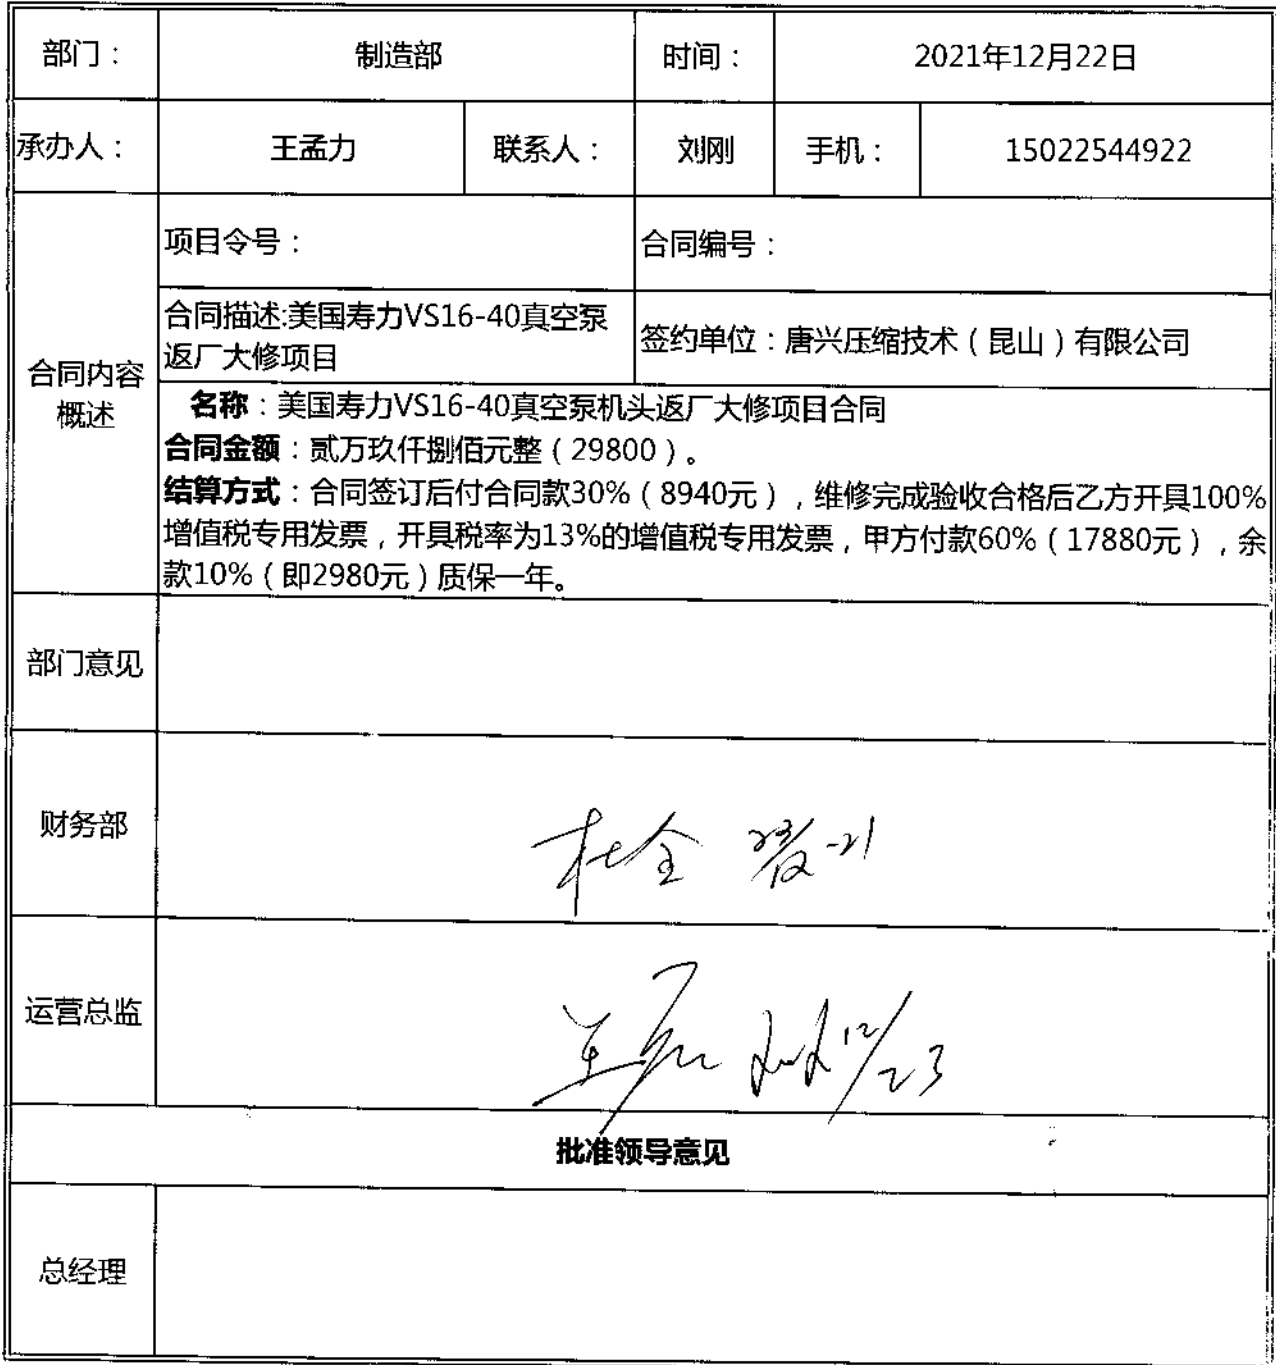 部门： 制造部 时间： 2021年12月22日
承办人： 王孟力 联系人： 刘刚 手机： 15022544922
项目令号： 合同编号：
合同描述:美国寿力VS16-40真空泵
返厂大修项目
签约单位：唐兴压缩技术（昆山）有限公司
合同内容
概述
名称：美国寿力VS16-40真空泵机头返厂大修项目合同
合同金额：贰万玖仟捌佰元整（29800）。
结算方式：合同签订后付合同款30%（8940元），维修完成验收合格后乙方开具100%
增值税专用发票，开具税率为13%的增值税专用发票，甲方付款60%（17880元），余
款10%（即2980元）质保一年。
部门意见
财务部
杜全
运营总监
12/23
批准领导意见
总经理